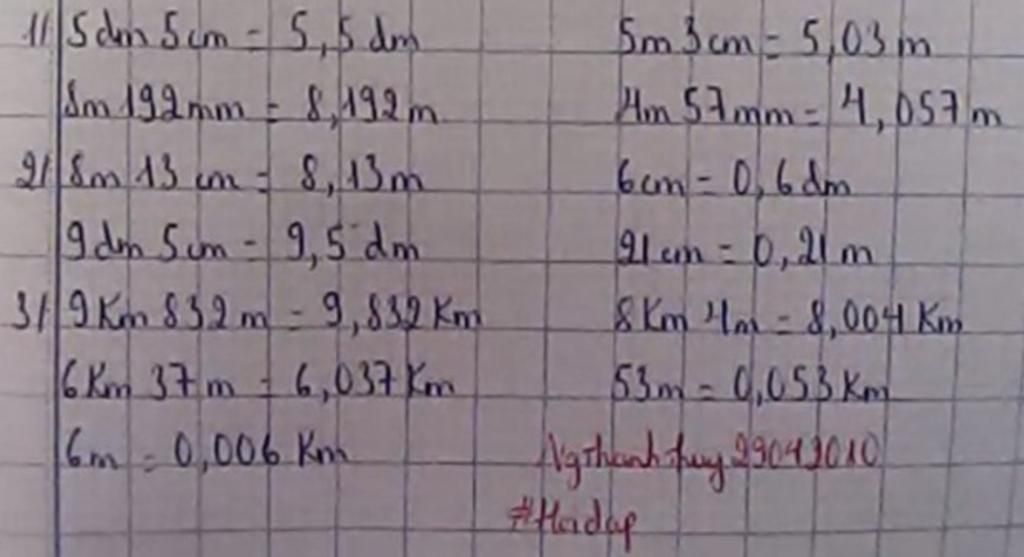 1/ 5dm 5cm = 5,5dm 5m 3cm = 5,03m
8m 192mm = 8,192m 4m 57mm = 4,057m
2/ 8m 13cm = 8,13m 6cm = 0,6dm
9dm 5cm = 9,5dm 21cm = 0,21m
3/ 9Km 832m = 9,832Km 8Km 4m = 8,004Km
6Km 37m = 6,037Km 53m = 0,053Km
6m = 0,006Km NgThanhthuy29042010
#Hoidap